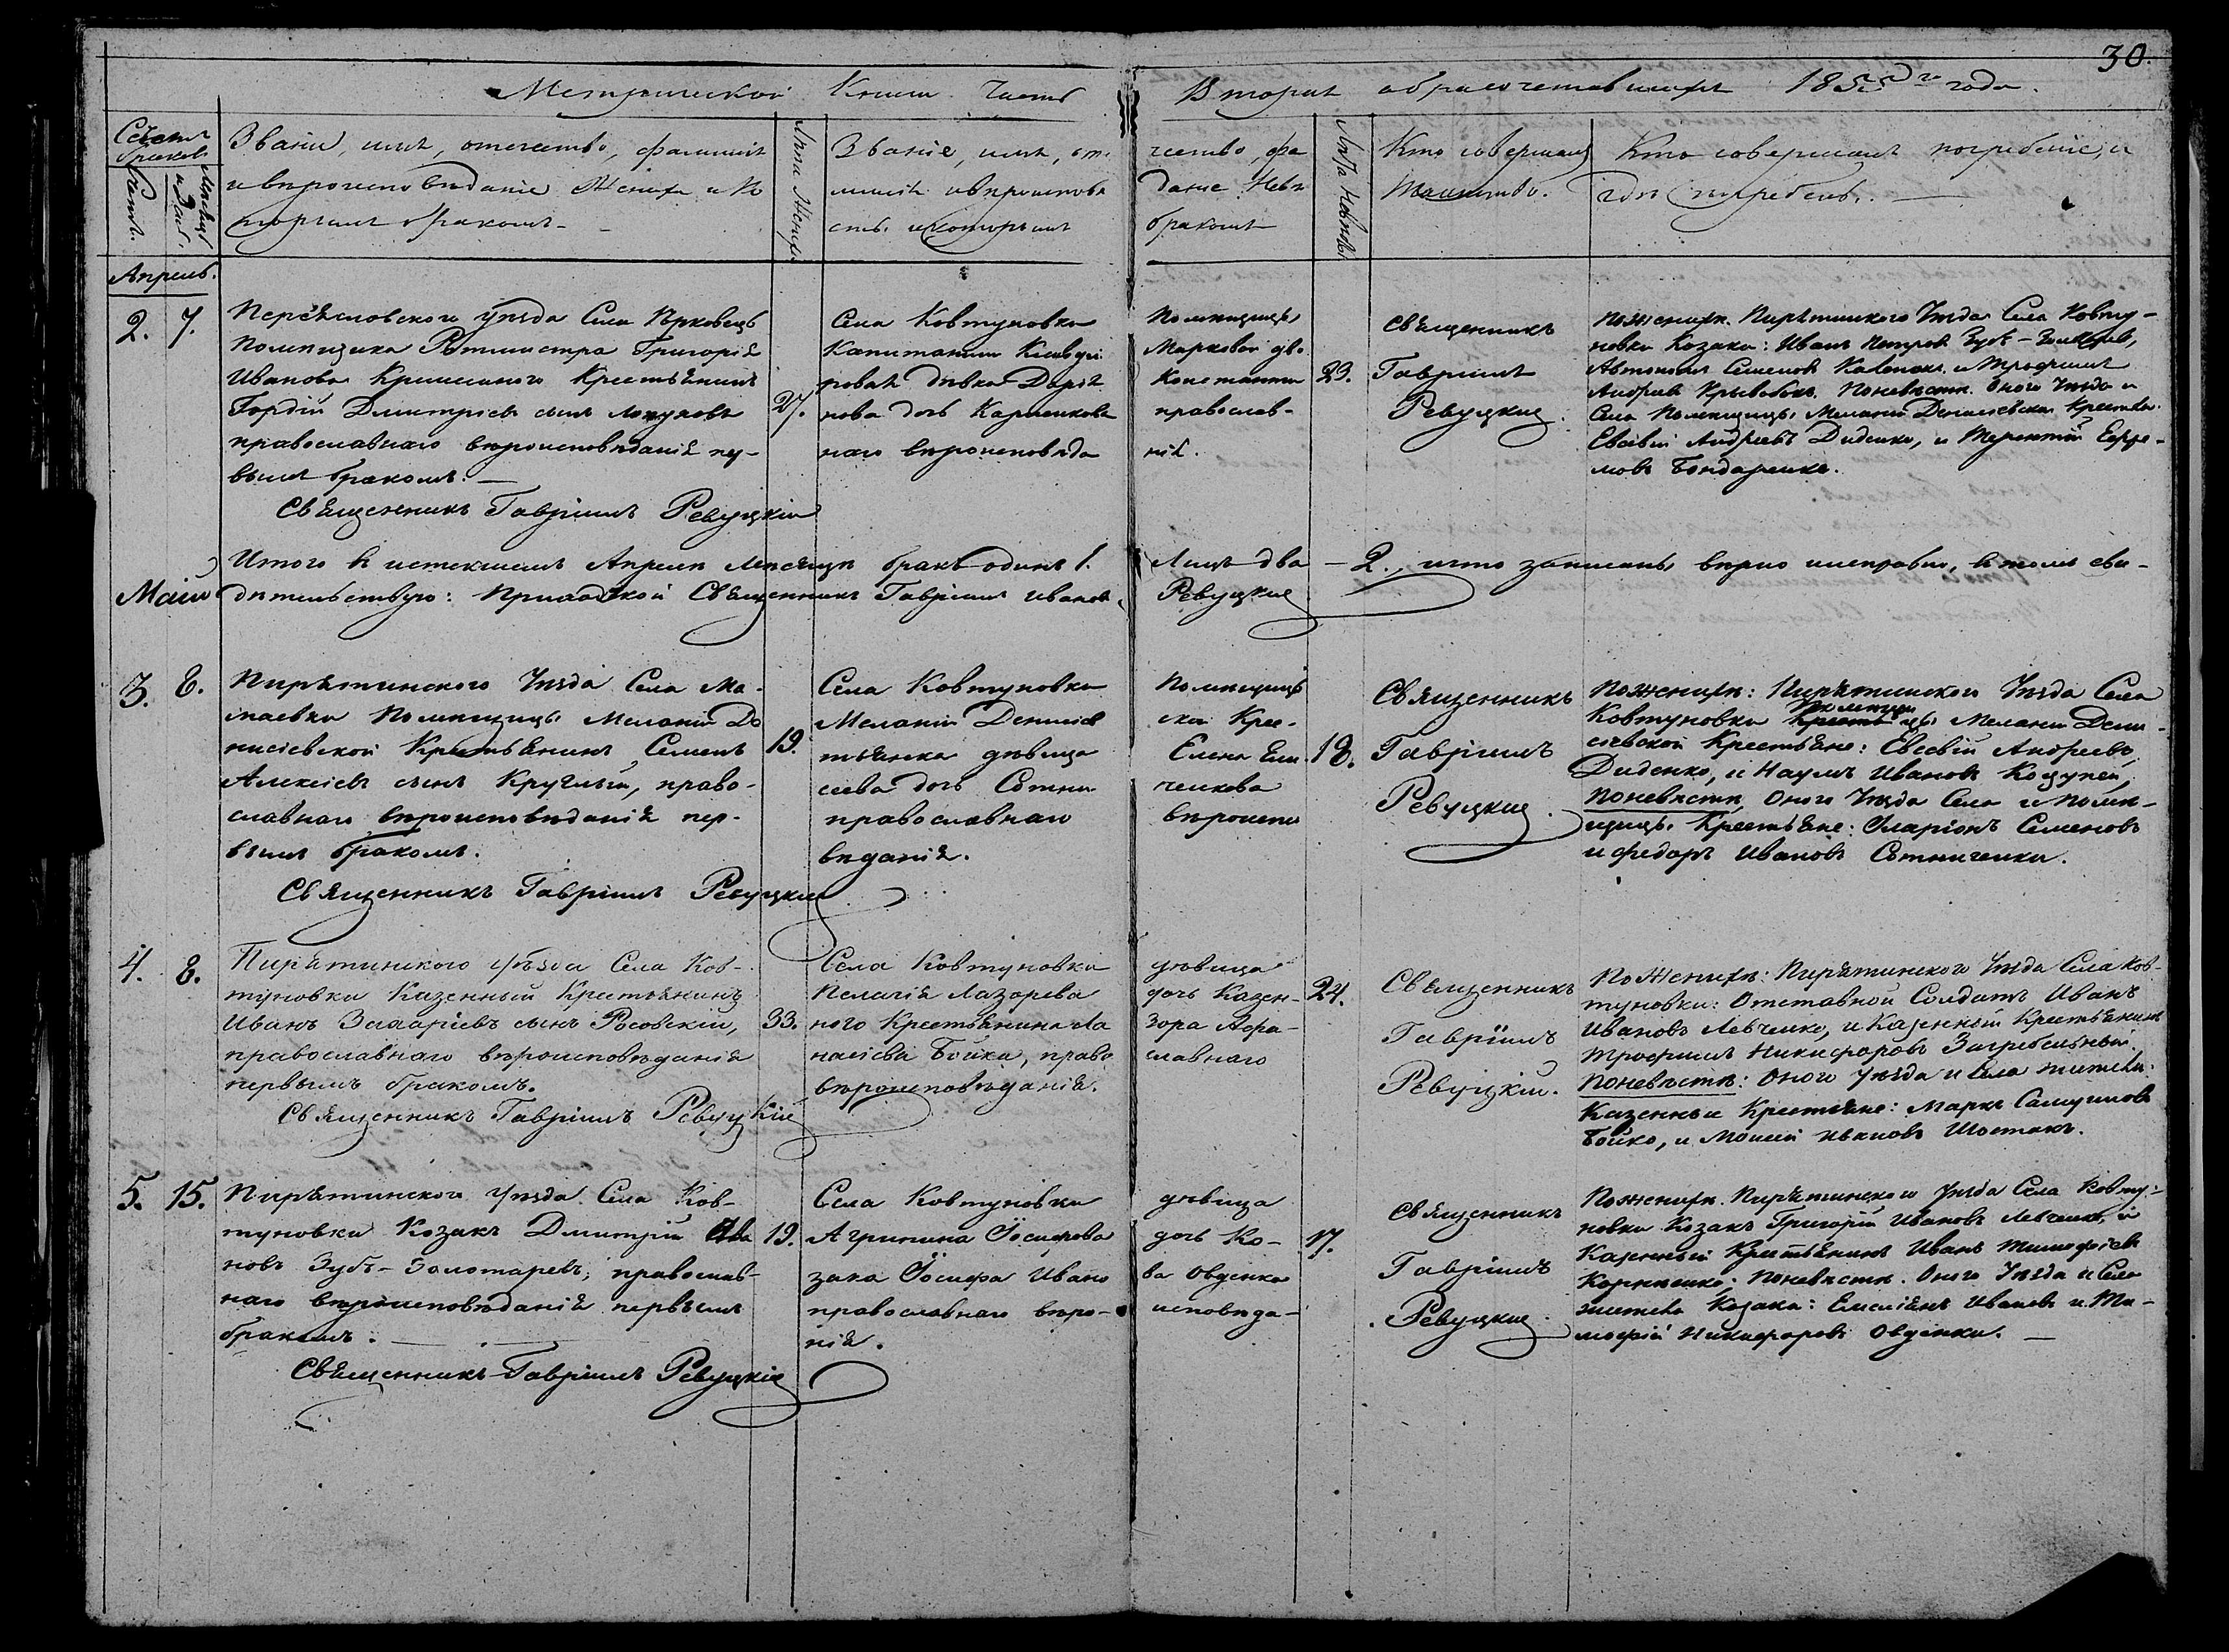 30.
Метрической Книги Часть Вторая о бракосочетавшихся 1855го года.
Счетъ браковъ
Мѣсяцъ и День.
Званіе, имя, отечество, фамилія
и вѣроисповѣданіе Жениха и ко
торымъ бракомъ.
Лѣта Жениха
Званіе, имя, оте чество, фа
милія и вѣроисповѣ даніе Невѣ
сты и которымъ бракомъ
Лѣта Невѣсты
Кто совершалъ
Таинство.
Кто совершалъ погребеніе, и
гдѣ погребенъ.
Апрель.
2. 7.
Переяславского уѣзда Села
Помѣщика Ротмистра Григорія
Иванова Крестьянинъ
Гордій Димитріевъ сынъ
православнаго вѣроисповѣданія пер-
вымъ бракомъ.
Священникъ Гавріилъ Ревуцкій
27.
Села Ковтуновки Помѣщицы
Капитанши Марковой
дѣвка Дарія Константи
нова дочь православ-
наго вѣроисповѣда нія.
23.
Священникъ
Гавріилъ
Ревуцкій.
По женихѣ. Пирятинского Уѣзда Села Ковту-
новки Козаки: Иванъ Петровъ Зубъ-
Семеновъ и Трофимъ
Андреевъ По невѣстѣ. Оного Уѣзда и
Села Помѣщицы Меланіи Денисіевской Крестьяне:
Евсевій Андреевъ Диденко, и Терентій Ефре-
мовъ Бондаренко.
Итого въ истекшемъ Апрели Мѣсяцѣ бракъ одинъ 1. Лицъ два — 2., что записаны вѣрно и исправно, въ томъ сви-
дѣтельствую: Приходской Священникъ Гавріилъ Ивановъ Ревуцкій
Маій
3. 8.
Пирятинского Уѣзда Села Ма-
маевки Помѣщицы Меланіи Де
нисіевской Крестьянинъ Семенъ
Алексіевъ сынъ Круглый, право-
славнаго вѣроисповѣданія пер-
вымъ бракомъ.
Священникъ Гавріилъ Ревуцкій
19.
Села Ковтуновки Помѣщицы
Меланіи Денисіев ской Крес-
тьянка дѣвица Елена Ели
сеева дочь Сотни ченкова
православнаго вѣроиспо
вѣданія.
18.
Священникъ
Гавріилъ
Ревуцкій.
По женихѣ: Пирятинского Уѣзда Села
Ковтуновки Помѣщицы Меланіи Дени-
сіевской Крестьяне: Евсевій Андреевъ
Диденко, и Наумъ Ивановъ Коцупей,
По невѣстѣ, Оного Уѣзда Села и помѣ-
щицы Крестьяне: Иларіонъ Семеновъ
и Федоръ Ивановъ Сотниченки.
4. 8.
Пирятинского уѣзда Села Ков-
туновки Казенный Крестьянинъ
Иванъ Захаріевъ сынъ Росовскій,
православнаго вѣроисповѣданія
первымъ бракомъ.
Священникъ Гавріилъ Ревуцкій
33.
Села Ковтуновки дѣвица
Пелагія Лазорева дочь Казен-
ного Крестьянина Ла зора Афа-
насіева Бойка, право славнаго
вѣроисповѣданія.
24.
Священникъ
Гавріилъ
Ревуцкій.
По Женихѣ: Пирятинского Уѣзда Села Ков-
туновки: Отставной Солдатъ Иванъ
Ивановъ Левченко, и Казенный Крестьянинъ
Трофимъ Никифоровъ Загребельный.
По невѣстѣ: Оного Уѣзда и Села жители:
Казенные Крестьяне: Марко Самуиловъ
Бойко, и Моисей Ивановъ Шостакъ.
5. 15.
Пирятинского Уѣзда Села Ков-
туновки Козакъ Димитрій Ива
новъ Зубъ-Золотаревъ, православ-
наго вѣроисповѣданія первымъ
бракомъ.
Священникъ Гавріилъ Ревуцкій
19.
Села Ковтуновки дѣвица
Агрипина Іосифова дочь Ко-
зака Іосифа Ивано ва Овденка
православнаго вѣро- исповѣда-
нія.
17.
Священникъ
Гавріилъ
Ревуцкій
По женихѣ. Пирятинского Уѣзда Села Ковту-
новки Козакъ Григорій Ивановъ Левченко, и
Казенный Крестьянинъ Иванъ Тимофіевъ
Корніенко; По невѣстѣ. Оного Уѣзда и Села
жители Козаки: Емеліянъ Ивановъ и Ти-
мофій Никифоровъ Овденки.